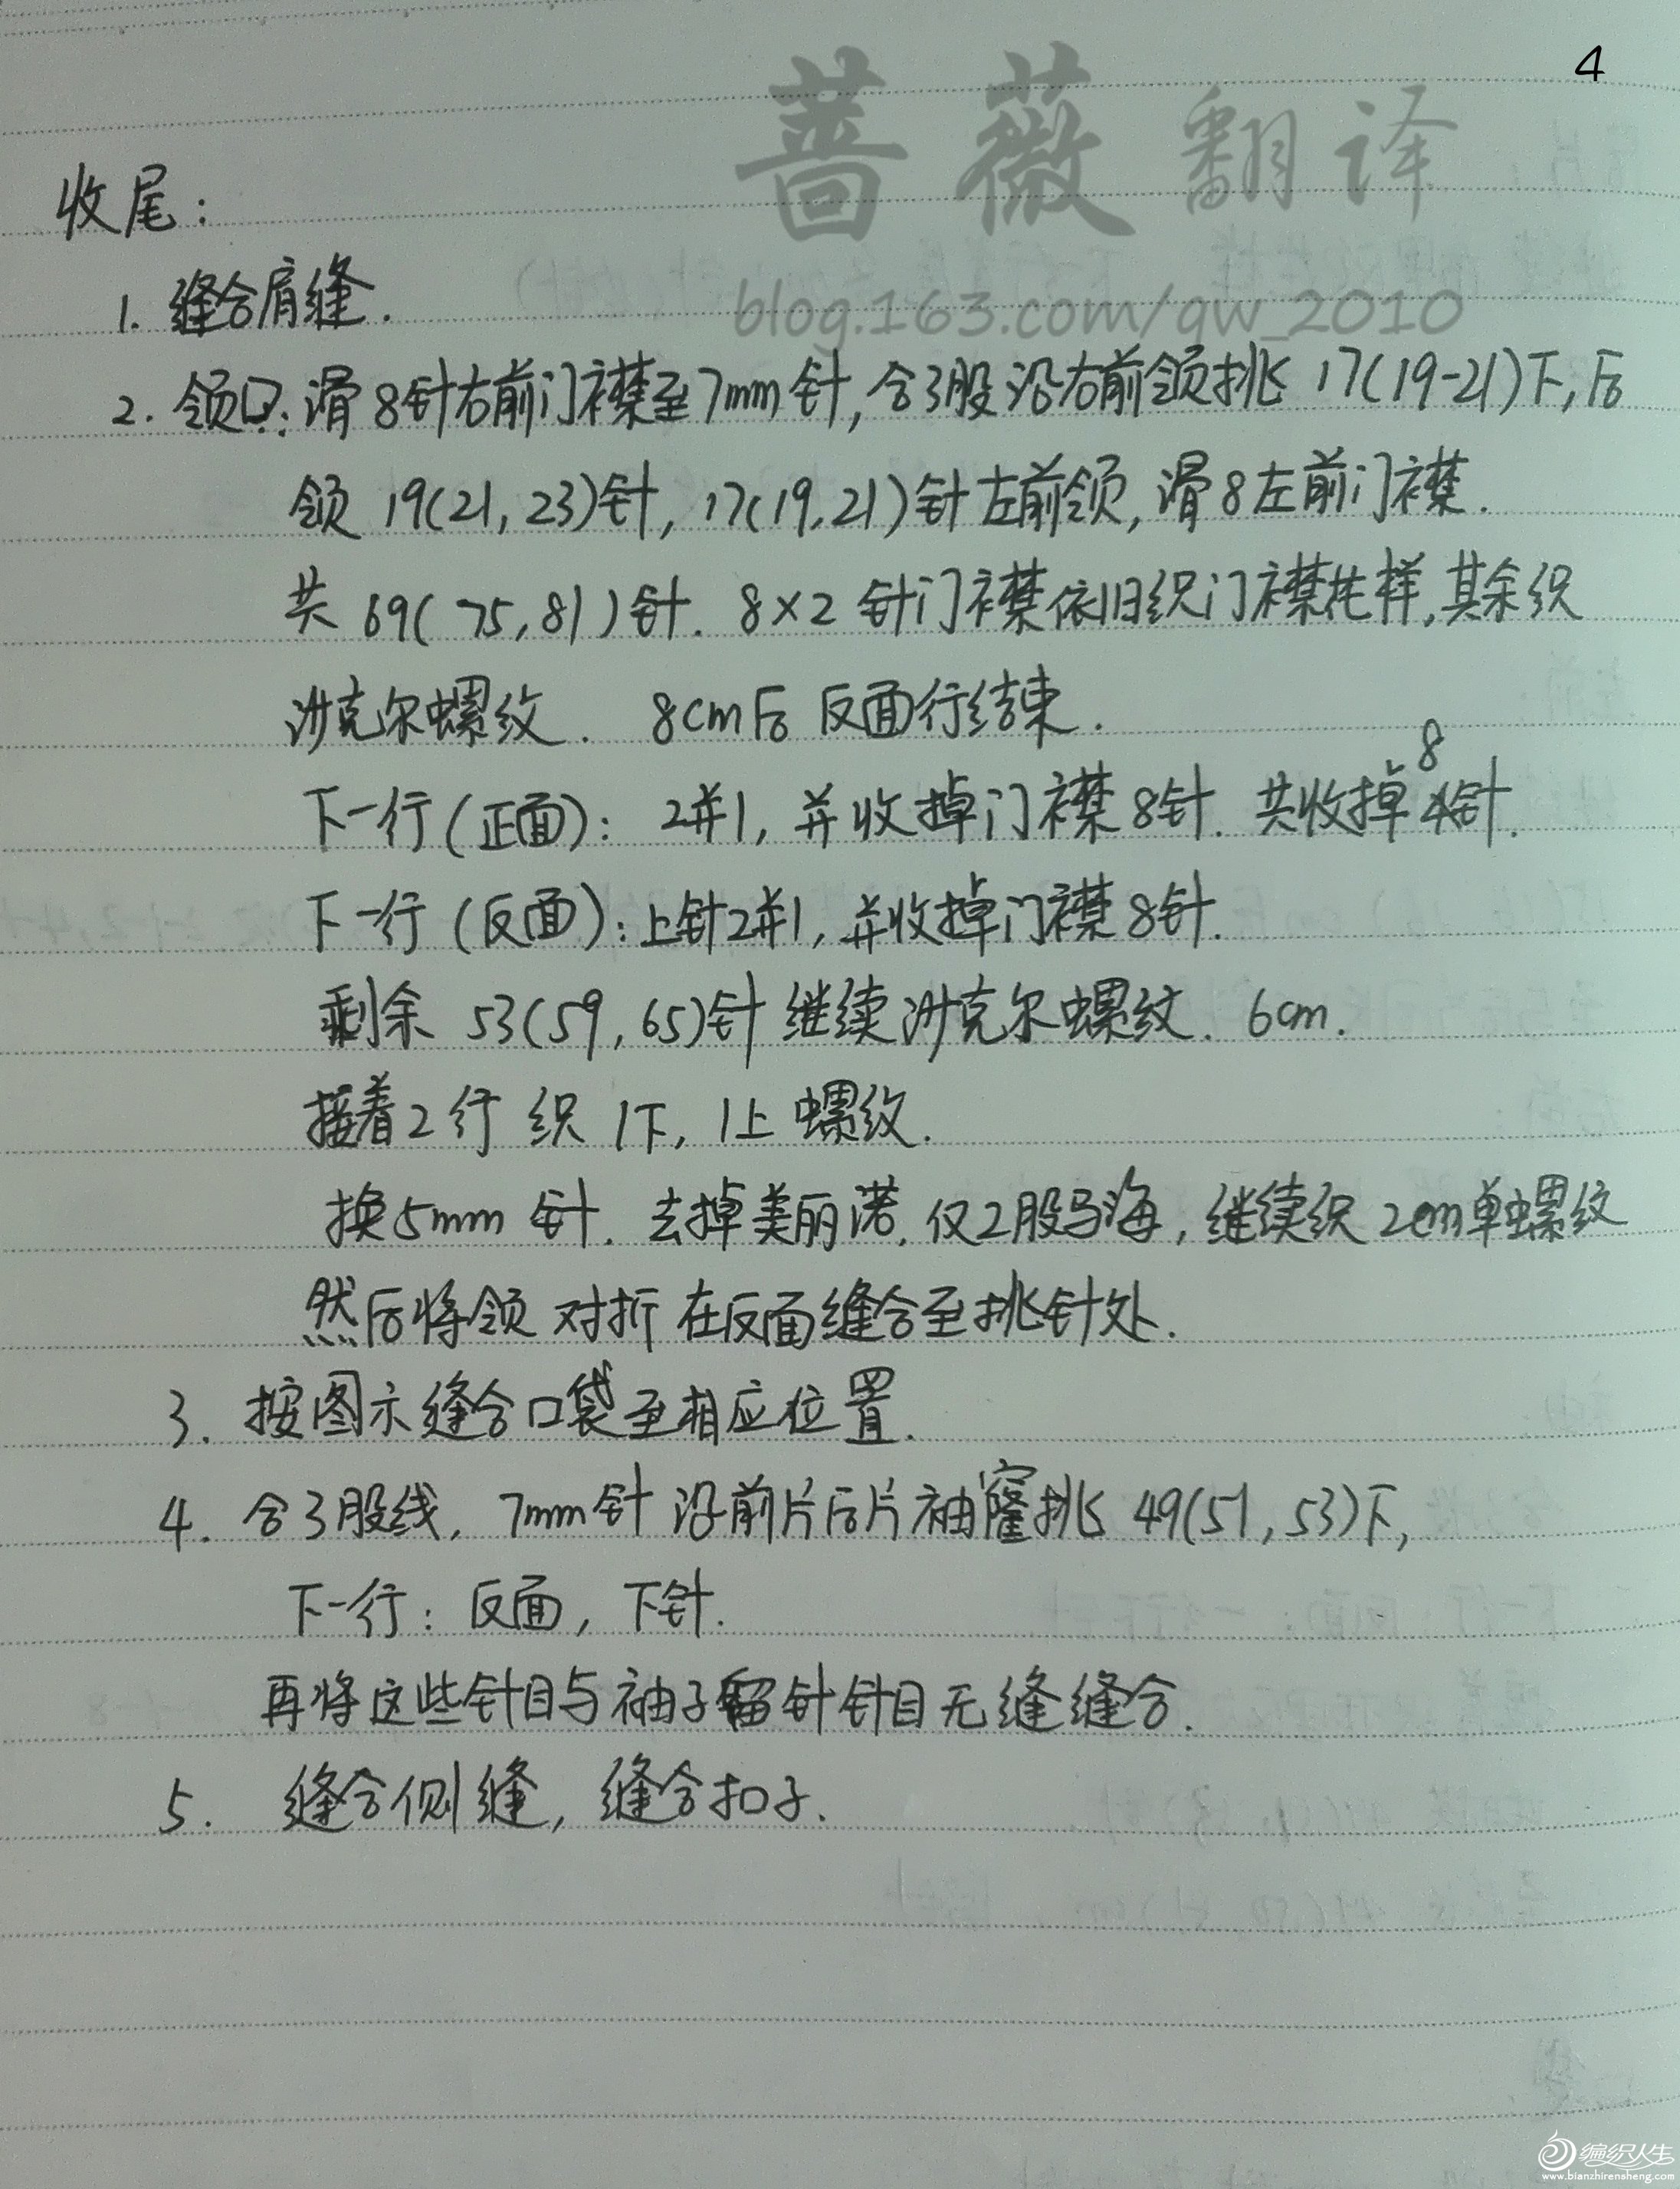 4
蔷薇翻译
blog.163.com/qw_2010
收尾:
1. 缝合肩缝.
2. 领口: 滑8针右前门襟至7mm针, 合3股沿右前领挑 17(19-21)下, 后
领 19(21, 23)针, 17(19, 21)针左前领, 滑8左前门襟.
共 69(75, 81)针. 8×2 针门襟依旧织门襟花样, 其余织
沙克尔螺纹. 8cm后 反面行结束.
下一行(正面): 2并1, 并收掉门襟8针. 共收掉8针.
下一行(反面): 上针2并1, 并收掉门襟8针.
剩余 53(59, 65)针 继续沙克尔螺纹. 6cm.
接着2行 织 1下, 1上 螺纹.
换5mm 针. 去掉美丽诺, 仅2股马海, 继续织 2cm单螺纹
然后将领 对折 在反面缝合至挑针处.
3. 按图示缝合口袋至相应位置.
4. 合3股线, 7mm针 沿前片后片袖窿挑 49(51, 53)下,
下一行: 反面, 下针.
再将这些针目与袖子留针针目无缝缝合.
5. 缝合侧缝, 缝合扣子.
编织人生
www.bianzhirensheng.com